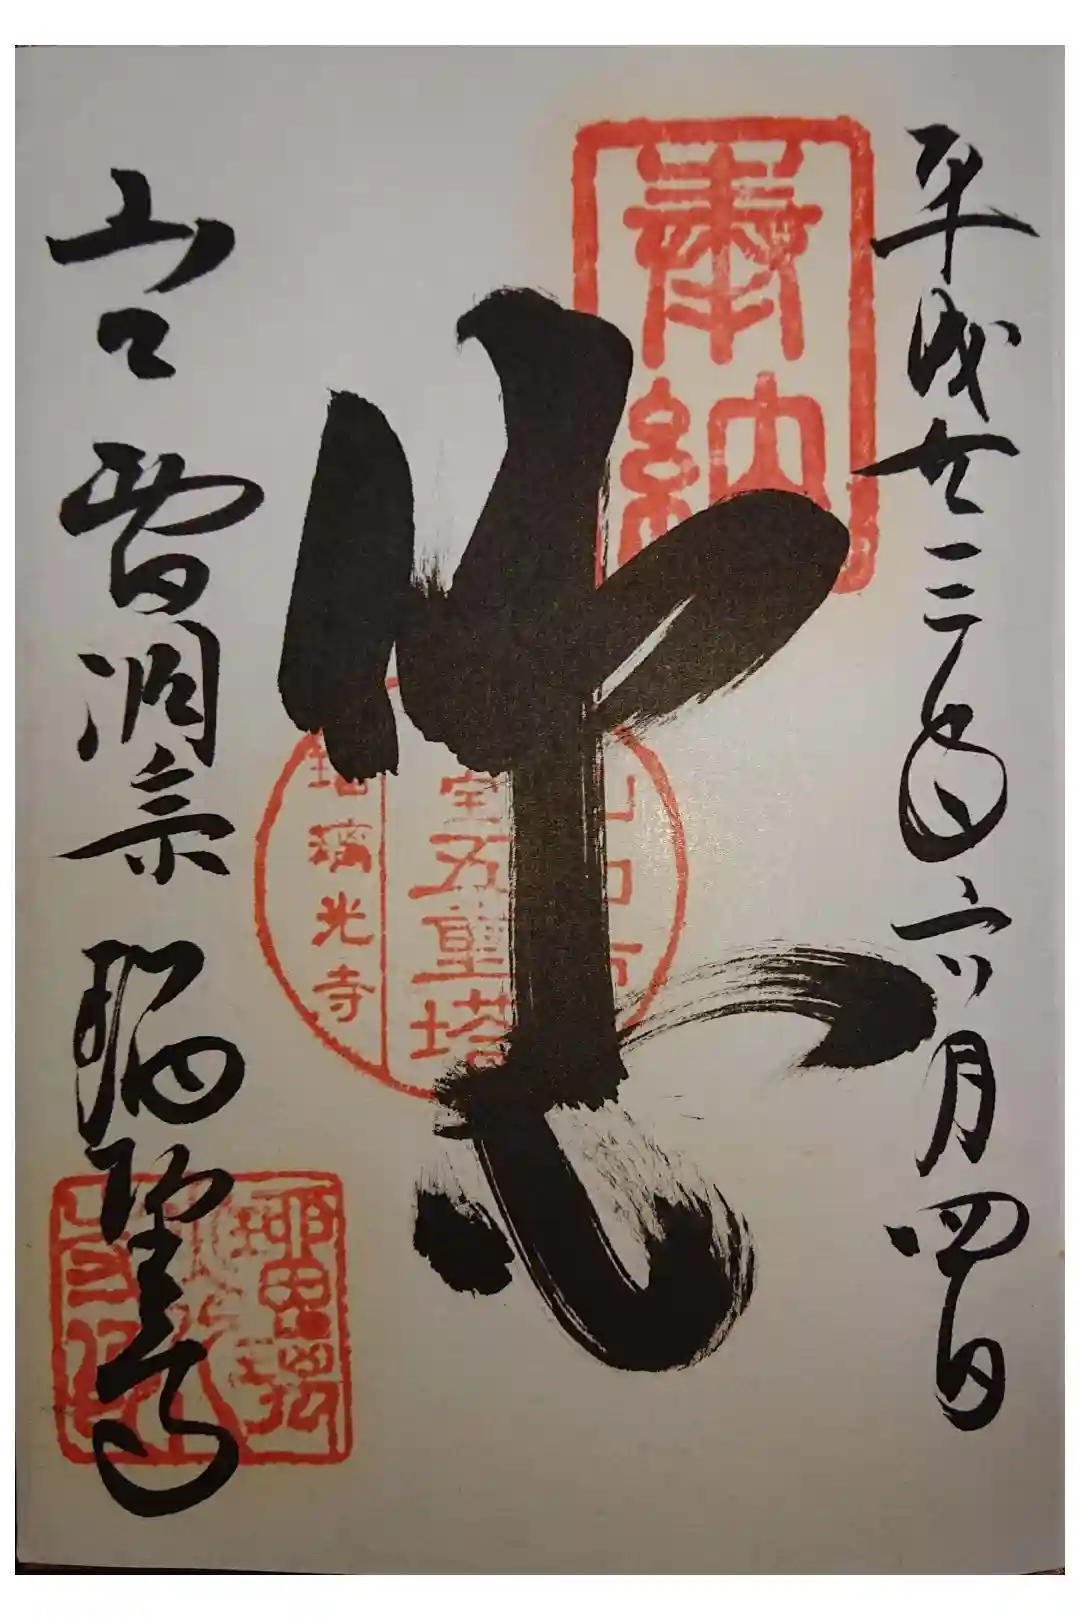 平成廿三年六月四日
奉納
山口市
宝五重塔
瑠璃光寺
山口曹洞宗瑠璃光寺